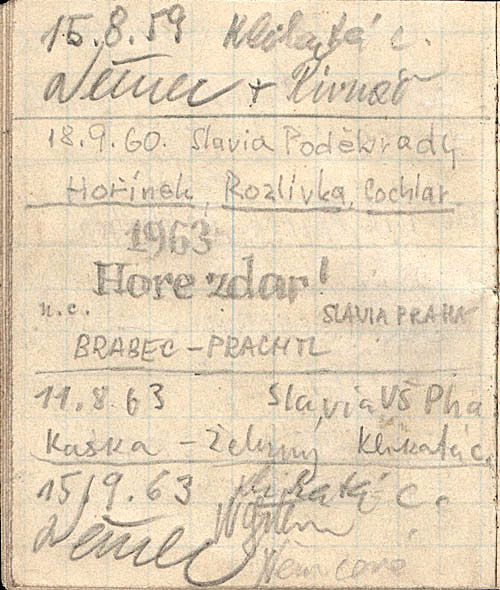 15.8.59 Klikatá c.
Němec + Pivnař
18.9.60. Slavia Poděbrady
Hořínek, Rozlívka, Cochlar
1963
Hore zdar!
n.c. SLAVIA PRAHA
BRABEC – PRACHTL
11.8.63 Slavia VŠ Pha
Kaska – Železný Klikatá c.
15.9.63 Klikatá c.
Němec
Němcová